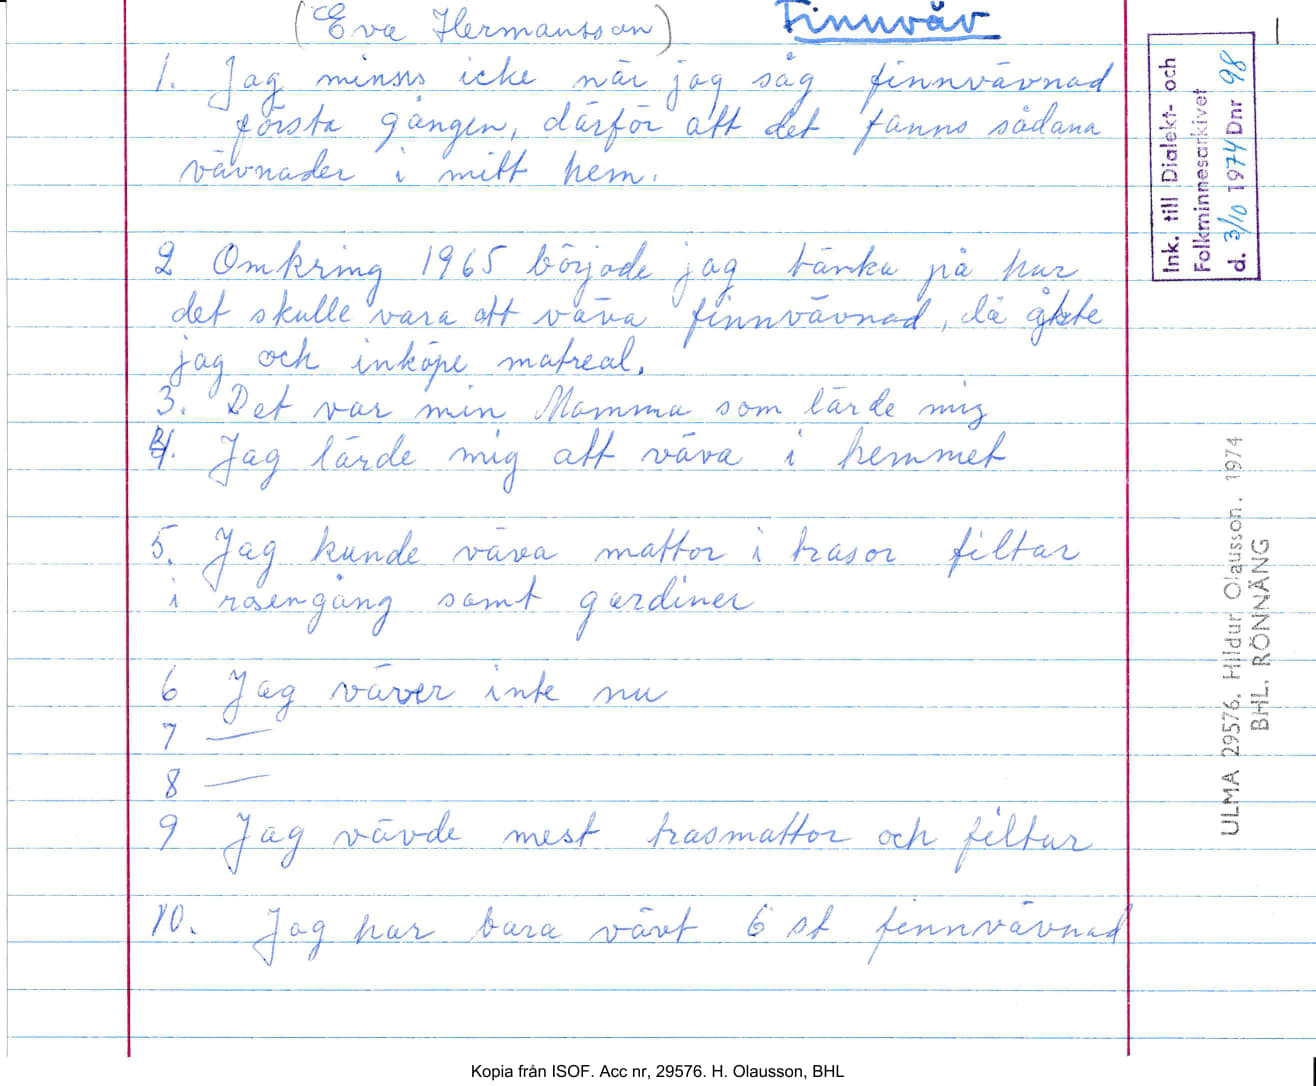 (Eva Hermansson) Finnväv 1
1. Jag minns icke när jag såg finnvävnad
första gången, därför att det fanns sådana
vävnader i mitt hem.
2 Omkring 1965 började jag tänka på hur
det skulle vara att väva finnvävnad, då åkte
jag och inköpe matreal.
3. Det var min Mamma som lärde mig
4. Jag lärde mig att väva i hemmet
5. Jag kunde väva mattor i trasor filtar
i rosengång samt gardiner
6 Jag väver inte nu
7 —
8 —
9 Jag vävde mest trasmattor och filtar
10. Jag har bara vävt 6 st finnvävnad
Ink. till Dialekt- och
Folkminnesarkivet
d. 3/10 1974 Dnr 98
ULMA 29576. Hildur Olausson. 1974
BHL. RÖNNÄNG
Kopia från ISOF. Acc nr, 29576. H. Olausson, BHL